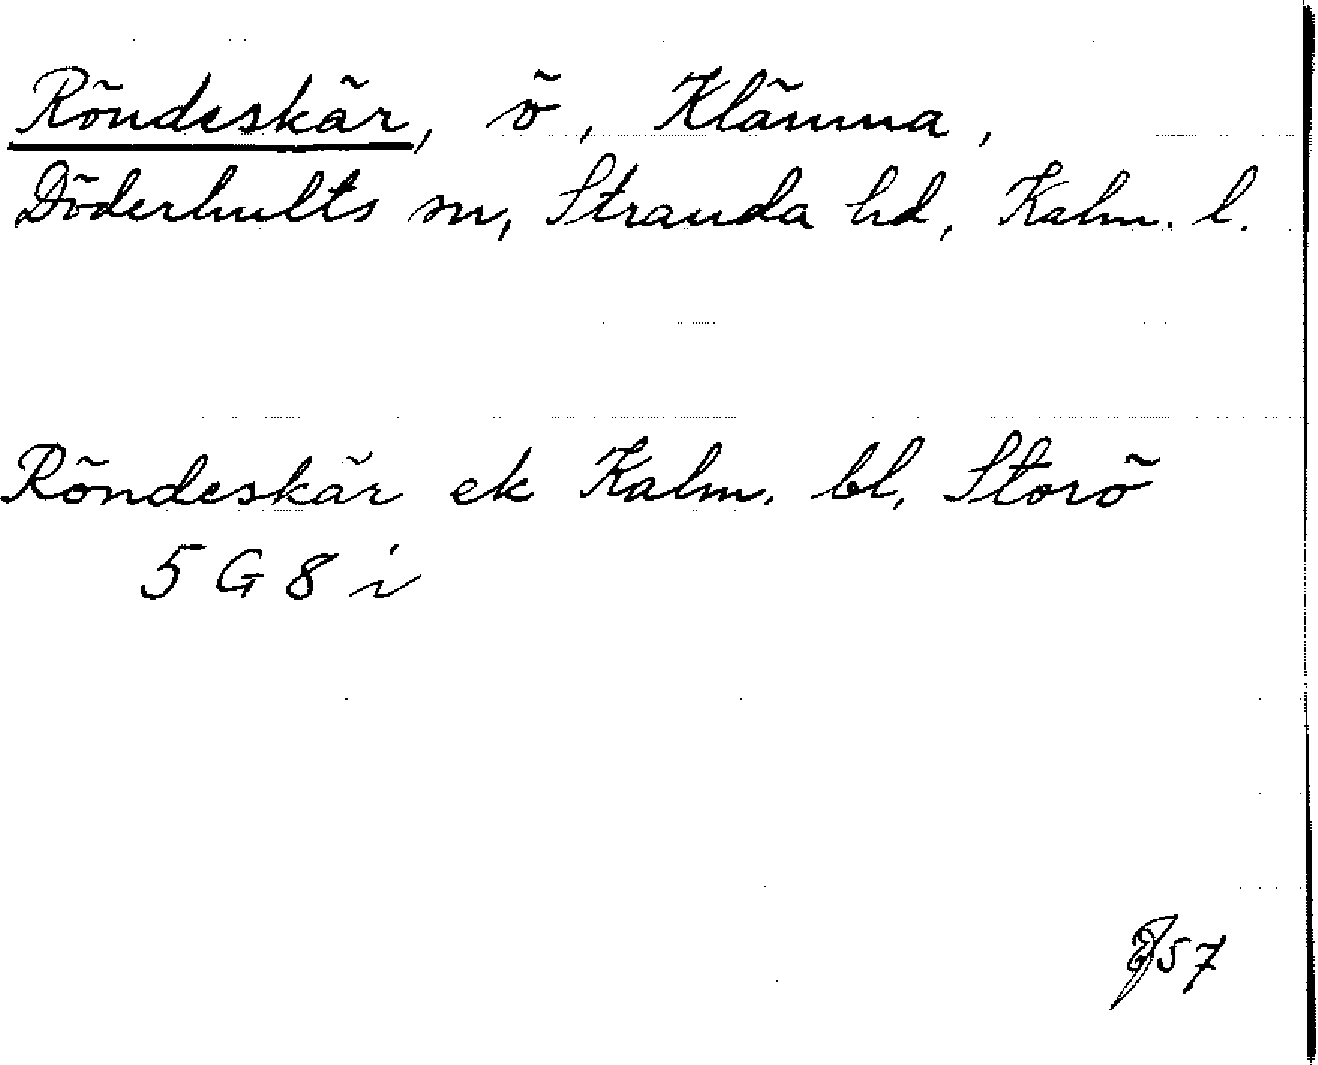 Röndeskär, ö, Klämna,
Döderhults sn, Stranda hd, Kalm. l.
Röndeskär ek Kalm. bl. Storö
5 G 8 i
57